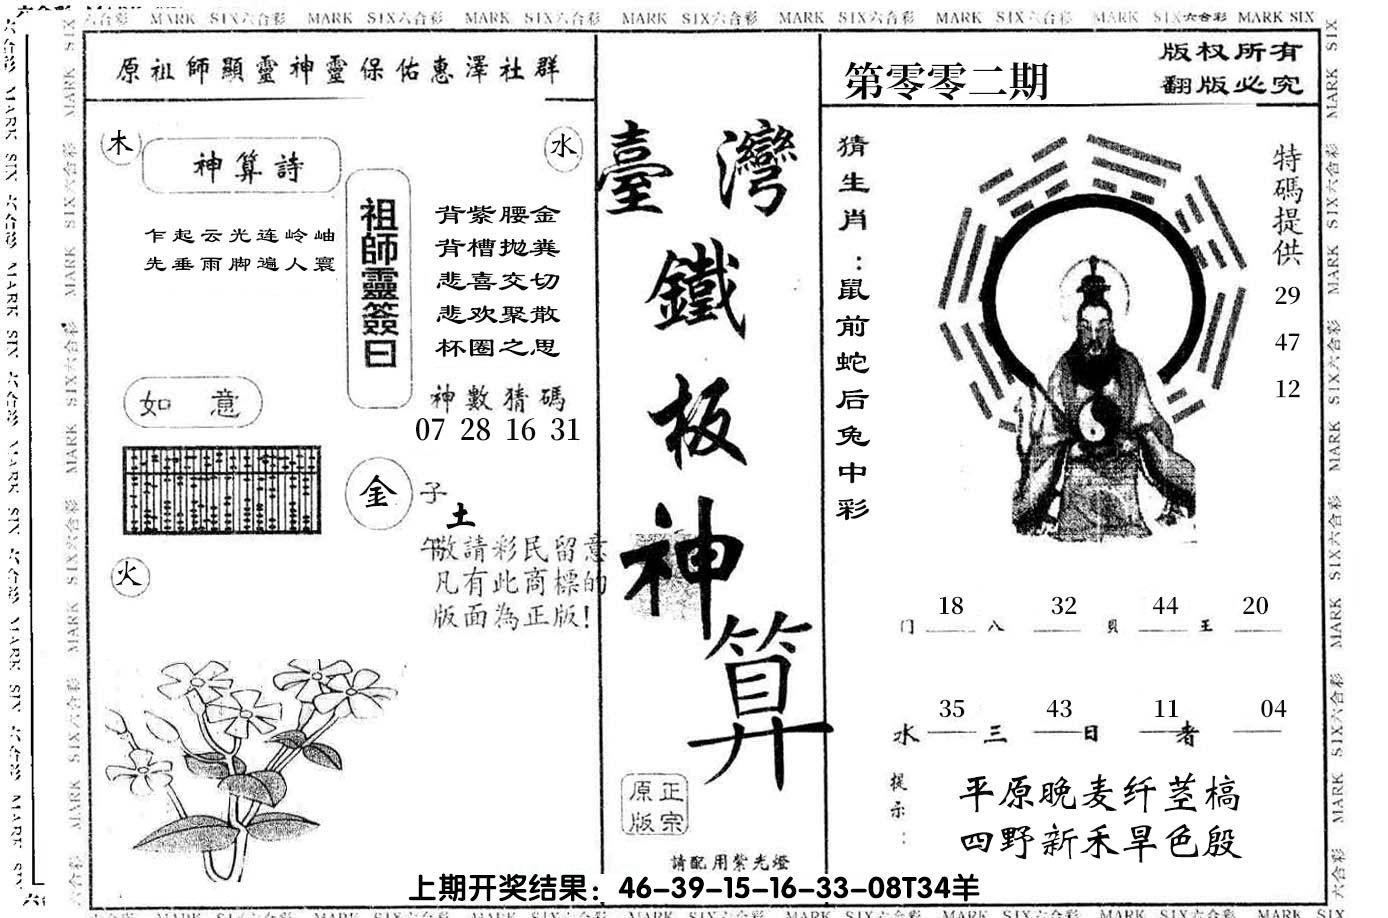 MARK SIX六合彩 MARK SIX六合彩 MARK SIX六合彩 MARK SIX六合彩 MARK SIX六合彩 MARK SIX六合彩 MARK SIX六合彩 MARK SIX
原祖師顯靈神靈保佑惠澤社群
木
水
神算詩
乍起云光连岭岫
先垂雨脚遍人寰
祖師靈簽曰
背紫腰金
背槽抛粪
悲喜交切
悲欢聚散
杯圈之思
神數猜碼
07 28 16 31
如意
金
子
土
午
火
敬請彩民留意
凡有此商標的
版面為正版!
臺灣
鐵
板
神
算
正宗
原版
請配用紫光燈
第零零二期
版权所有
翻版必究
猜生肖:鼠前蛇后兔中彩
特碼提供
29
47
12
18 32 44 20
门 八 貝 王
35 43 11 04
水 三 日 者
提示:
平原晚麦纤茎槁
四野新禾旱色殷
上期开奖结果：46-39-15-16-33-08T34羊